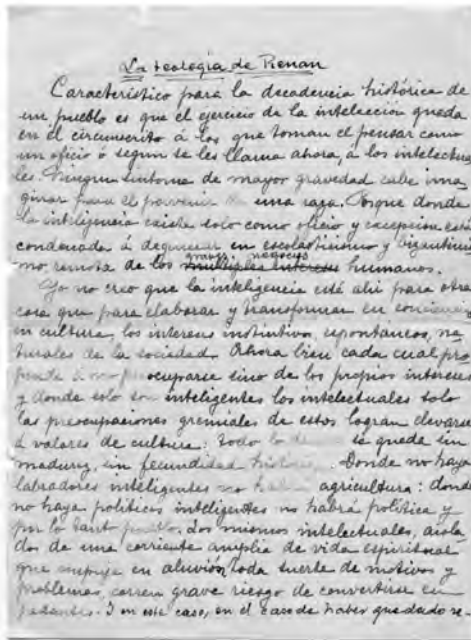 La teología de Renan
Característico para la decadencia histórica de
un pueblo es que el ejercicio de la intelección queda
en él circunscrito á los que toman el pensar como
un oficio ó segun se les llama ahora, á los intelectua
les. Ningun sintoma de mayor gravedad cabe ima
ginar para el porvenir de una raza. Porque donde
la inteligencia existe solo como oficio y excepcion está
condenada á degenerar en escolasticismo y bizantinis
mo, remota de los graves negocios humanos.
Yo no creo que la inteligencia esté ahi para otra
cosa que para elaborar y transformar en conciencia,
en cultura, los intereses instintivos, espontaneos, na
turales de la sociedad. Ahora bien cada cual pro
pende á no preocuparse sino de los propios intereses
y donde solo son inteligentes los intelectuales solo
las preocupaciones gremiales de estos logran elevarse
á valores de cultura: todo lo demás se queda sin
madurez, sin fecundidad histórica. Donde no haya
labradores inteligentes no habrá agricultura: donde
no haya politicos inteligentes no habrá politica y
por lo tanto pueblo. Los mismos intelectuales, aisla
dos de una corriente amplia de vida espiritual
que empuje en aluvión toda suerte de motivos y
problemas, corren grave riesgo de convertirse en
pedantes. I en este caso, en el caso de haber quedado re-